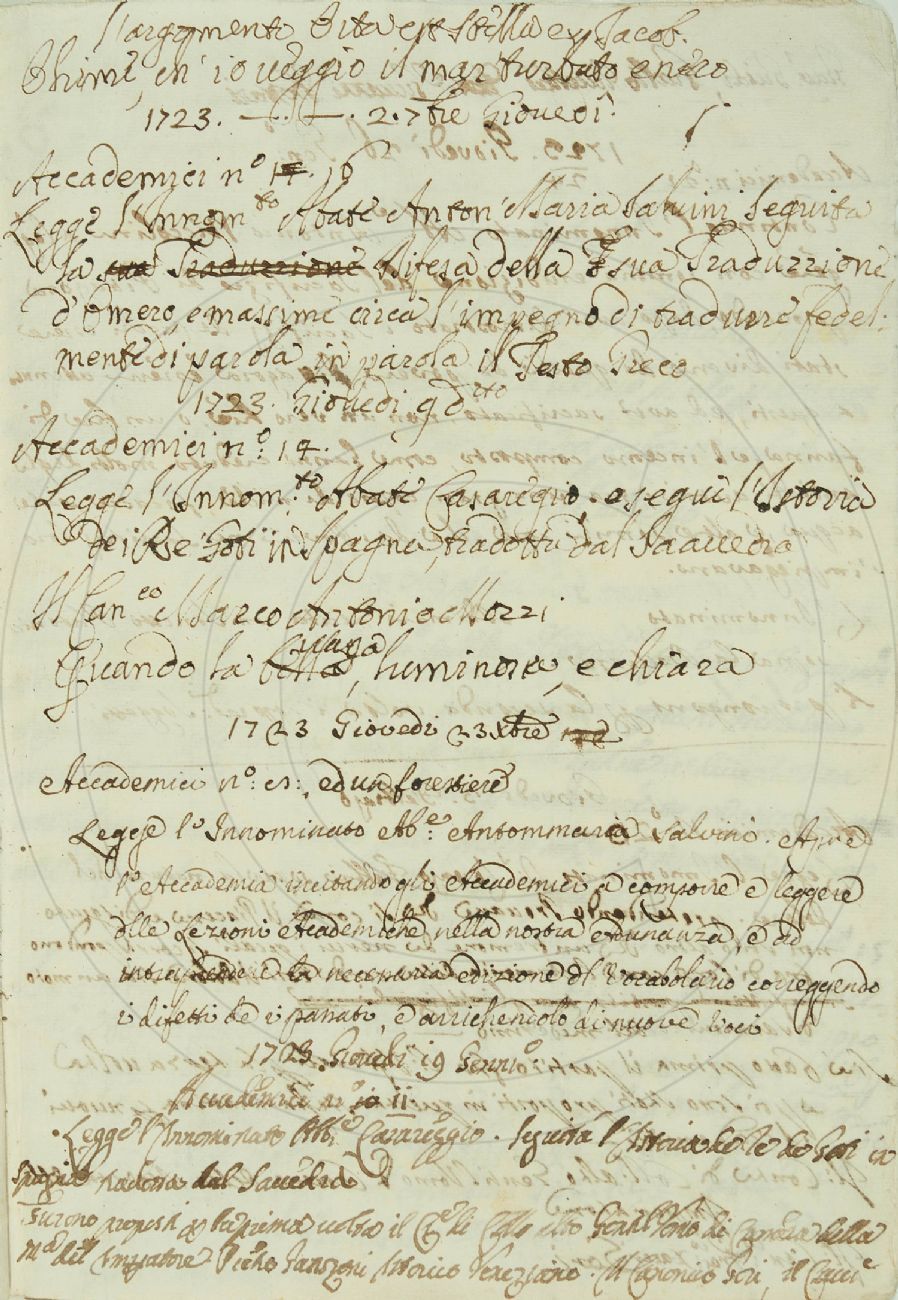 l'argomento Orta est Stella ex Jacob.
Ohimè, ch' io veggio il mar turbato e nero
1723. — . — . 2. 7bre Giovedì.
Accademici n.º 14. 16
Legge l'Innom.to Abate Anton Maria Salvini seguita
la sua Traduzzione Difesa della sua Traduzzione
d'Omero, e massime circa l'impegno di tradurre fedel:
mente di parola in parola il Testo Greco
1723. Giovedì 9 d.cto
Accademici n.º: 14.
Legge l'Innom.to Abate Casaregio, e seguì l'Istoria
dei Re Goti in Spagna, tradotta dal Saavedra
Il Can.co Marco Antonio Mozzi
Quando la bella Luna, luminosa, e chiara
1723 Giovedì 23 Xbre
Accademici n.º: 21:, ed un forestiere
Legge l'Innominato Ab.e Antommaria Salvini. Apre
l'Accademia incitando gli Accademici a comporre e leggere
delle Lezioni Accademiche nella nostra Adunanza, e ad
intraprendere la necessaria edizione del Vocabolario correggendo
i difetti de i passati, e arrichendolo di nuove voci
1723. Giovedì 19 Genn.º
Accademici n.º 10 11
Legge l'Innominato Abb.e Casareggio. Seguita l'Istoria de Re de Goti in
Spagna tradotta dal Saavedra
Furono proposti p la prima volta il di Gentilomo di Camera della
M.a dell Imperatore Istorico Veneziano. Il Canonico Gori, il